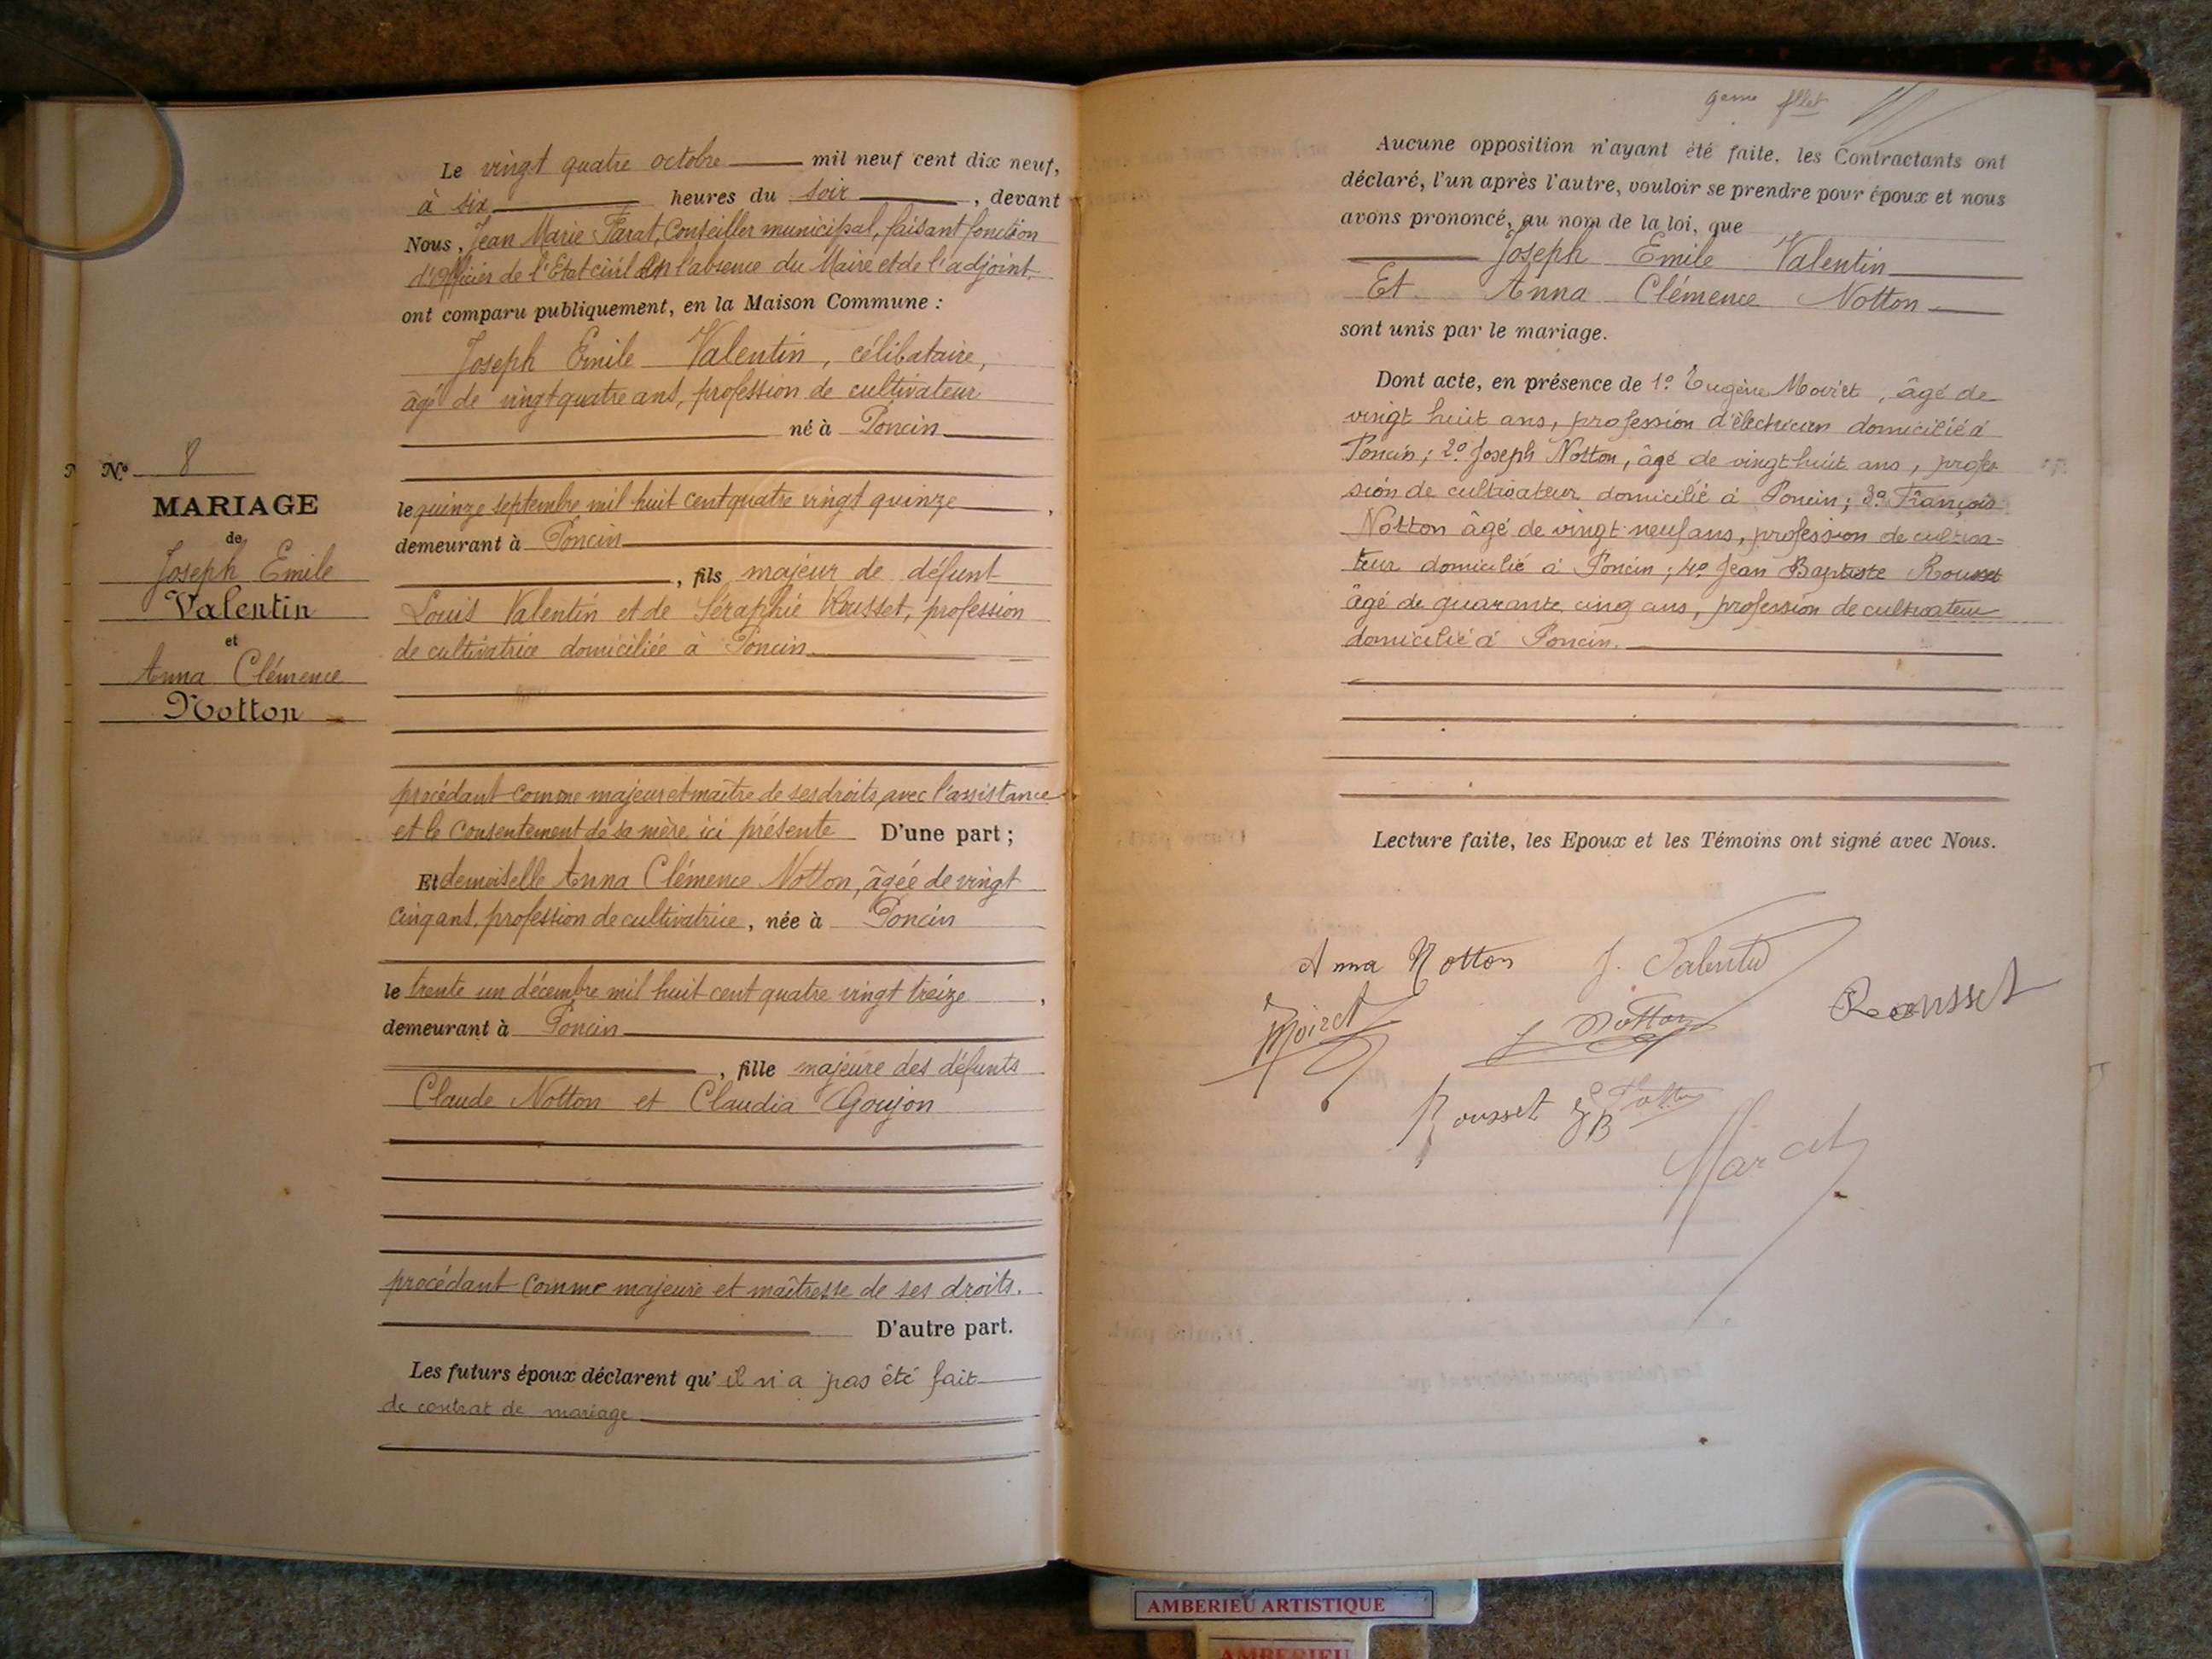 N° 8
MARIAGE
de
Joseph Emile
Valentin
et
Anna Clémence
Notton
Le vingt quatre octobre mil neuf cent dix neuf,
à six heures du soir, devant
Nous, Jean Marie Conseiller municipal, faisant fonction
d'Officier de l'Etat civil en l'absence du Maire et de l'adjoint
ont comparu publiquement, en la Maison Commune :
Joseph Emile Valentin, célibataire,
âgé de vingt quatre ans, profession de cultivateur
né à Poncin
le quinze septembre mil huit cent quatre vingt quinze,
demeurant à Poncin
, fils majeur de défunt
Louis Valentin et de Séraphie Rousset, profession
de cultivatrice domiciliée à Poncin
procédant comme majeur et maître de ses droits, avec l'assistance
et le consentement de sa mère ici présente D'une part ;
Et demoiselle Anna Clémence Notton, âgée de vingt
cinq ans, profession de cultivatrice, née à Poncin
le trente un décembre mil huit cent quatre vingt treize,
demeurant à Poncin
, fille majeure des défunts
Claude Notton et Claudia Goujon
procédant comme majeure et maîtresse de ses droits.
D'autre part.
Les futurs époux déclarent qu'il n'a pas été fait
de contrat de mariage
9eme fllet
Aucune opposition n'ayant été faite, les Contractants ont
déclaré, l'un après l'autre, vouloir se prendre pour époux et nous
avons prononcé, au nom de la loi, que
Joseph Emile Valentin
Et Anna Clémence Notton
sont unis par le mariage.
Dont acte, en présence de 1° Eugène Moiret, âgé de
vingt huit ans, profession d'électricien domicilié à
Poncin ; 2° Joseph Notton, âgé de vingt huit ans, profes
sion de cultivateur domicilié à Poncin ; 3° François
Notton âgé de vingt neuf ans, profession de cultiva-
teur domicilié à Poncin ; 4° Jean Baptiste Rousset
âgé de quarante cinq ans, profession de cultivateur
domicilié à Poncin.
Lecture faite, les Epoux et les Témoins ont signé avec Nous.
Anna Notton J. Valentin
E Moiret J Notton Rousset
Rousset JB F Notton
AMBERIEU ARTISTIQUE
AMBERIEU